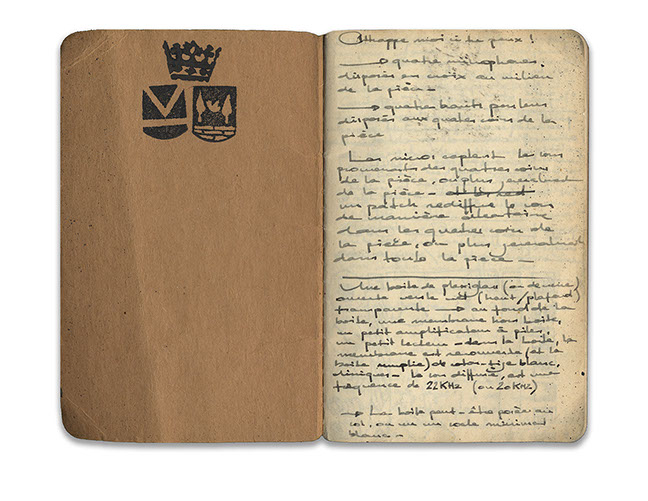 Attrappe moi si tu peux !
→ quatre microphones,
disposés en croix au milieu
de la pièce -
→ quatre hauts parleurs
disposés aux quatre coins de la
pièce
Les micros captent les sons
provenants des quatres coins
de la pièce, ou plus
de la pièce -
un patch rediffuse le son
de manière aléatoire
dans les quatre coins de
la pièce, ou plus
dans toute la pièce -
Une boite de plexiglas (ou de verre)
ouverte vers le (haut/plafond)
transparente → au fond de la
boite, une membrane hors boite,
un petit amplificateur à piles,
un petit lecteur - dans la boite, la
membrane est recouverte (et la
boite remplie) de coton-tige blanc,
cliniques - le son diffusé, est une
fréquence de 22KHz (ou 20KHz)
→ La boite peut-être posée au
sol, ou sur un socle minimal
blanc -